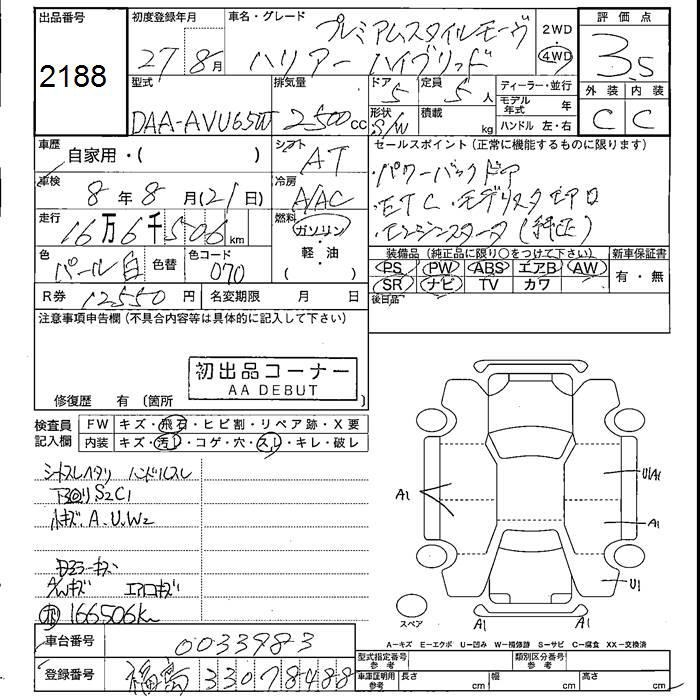 出品番号
2188
初度登録年月
27年8月
車名・グレード
プレミアムスタイルモーヴ
ハリアー ハイブリッド
2WD
4WD
評価点
3.5
外装 内装
C C
型式
DAA-AVU65W
排気量
2500cc
ドア 5
形状 S/W
定員 5人
積載 kg
ディーラー・並行
モデル年式 年
ハンドル 左・右
車歴
自家用・( )
シフト AT
車検 8年8月(21日)
冷房 A/AC
走行 16万6千506km
燃料 ガソリン・軽・油
色 パール白 色替
色コード 070
R券 12550円
名変期限 月 日
セールスポイント (正常に機能するものに限ります)
・パワーバックドア
・ETC ・モデリスタエアロ
・エンジンスターター(純正)
装備品 (純正品に限り○をつけて下さい)
PS PW ABS エアB AW
SR ナビ TV カワ
新車保証書
有・無
後日品
注意事項申告欄 (不具合内容等は具体的に記入して下さい)
初出品コーナー
AA DEBUT
修復歴 有 (箇所 )
検査員記入欄
FW キズ・飛石・ヒビ割・リペア跡・X要
内装 キズ・汚レ・コゲ・穴・スレ・キレ・破レ
シートスレヘタリ ハンドルスレ
下回りS2C1
小キズ A.U.W2
ミラーキズ
A/Wキズ エアロキズ
166506km
A1
U1A1
A1
U1
A1
A1
スペア
A－キズ E－エクボ U－凹み W－補修跡 S－サビ C－腐食 XX－交換済
車台番号 0033983
登録番号 福島 330 78488
型式指定番号 参考
類別区分番号 参考
車庫証明用 参考
長さ cm
幅 cm
高さ cm